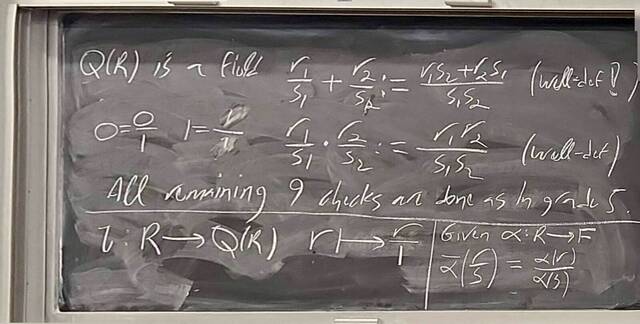 Q(R) is a field r₁/s₁ + r₂/s₂ := (r₁s₂+r₂s₁)/(s₁s₂) (well-def!)
0=0/1 1=r/r r₁/s₁ · r₂/s₂ := r₁r₂/(s₁s₂) (well-def)
All remaining 9 checks are done as in grade 5.
ι: R→Q(R) r↦r/1 Given α: R→F
ᾱ(r/s) = α(r)/α(s)